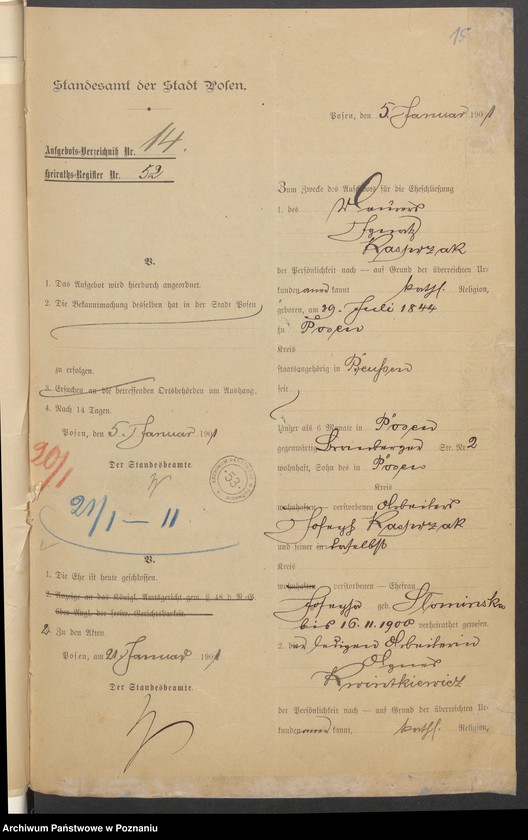 15
Standesamt der Stadt Posen.
Aufgebots-Verzeichniß Nr. 14.
Heiraths-Register Nr. 52
V.
1. Das Aufgebot wird hierdurch angeordnet.
2. Die Bekanntmachung desselben hat in der Stadt Posen
zu erfolgen.
3. Ersuchen an die betreffenden Ortsbehörden um Aushang.
4. Nach 14 Tagen.
Posen, den 5. Januar 1901
Der Standesbeamte
20/1
21/1 — 11
V.
1. Die Ehe ist heute geschlossen.
2. Anzeige an das Königl. Amtsgericht gem. § 48 d. R.-G.
über Angl. der freiw. Gerichtsbarkeit.
2. Zu den Akten
Posen, am 21 Januar 1901
Der Standesbeamte
Posen, den 5. Januar 1901
Zum Zwecke des Aufgebots für die Eheschließung
1. des Maurers
Ignatz
Kasprzak
der Persönlichkeit nach — auf Grund der überreichten Ur-
kunden kannt kath. Religion,
geboren, am 29. Juli 1844
zu Posen
Kreis
staatsangehörig in Preußen
seit
länger als 6 Monate in Posen
gegenwärtig Bromberger Str. Nr. 2
wohnhaft, Sohn des in Posen
Kreis
wohnhaften — verstorbenen Arbeiters
Joseph Kasprzak
und seiner in daselbst
Kreis
wohnhaften verstorbenen — Ehefrau
Josepha geb. Slominska
bis 16.11.1900 verheirathet gewesen.
2. der ledigen Arbeiterin
Agnes
Kwintkiewicz
der Persönlichkeit nach — auf Grund der überreichten Ur-
kunden kannt, kath. Religion,
Archiwum Państwowe w Poznaniu